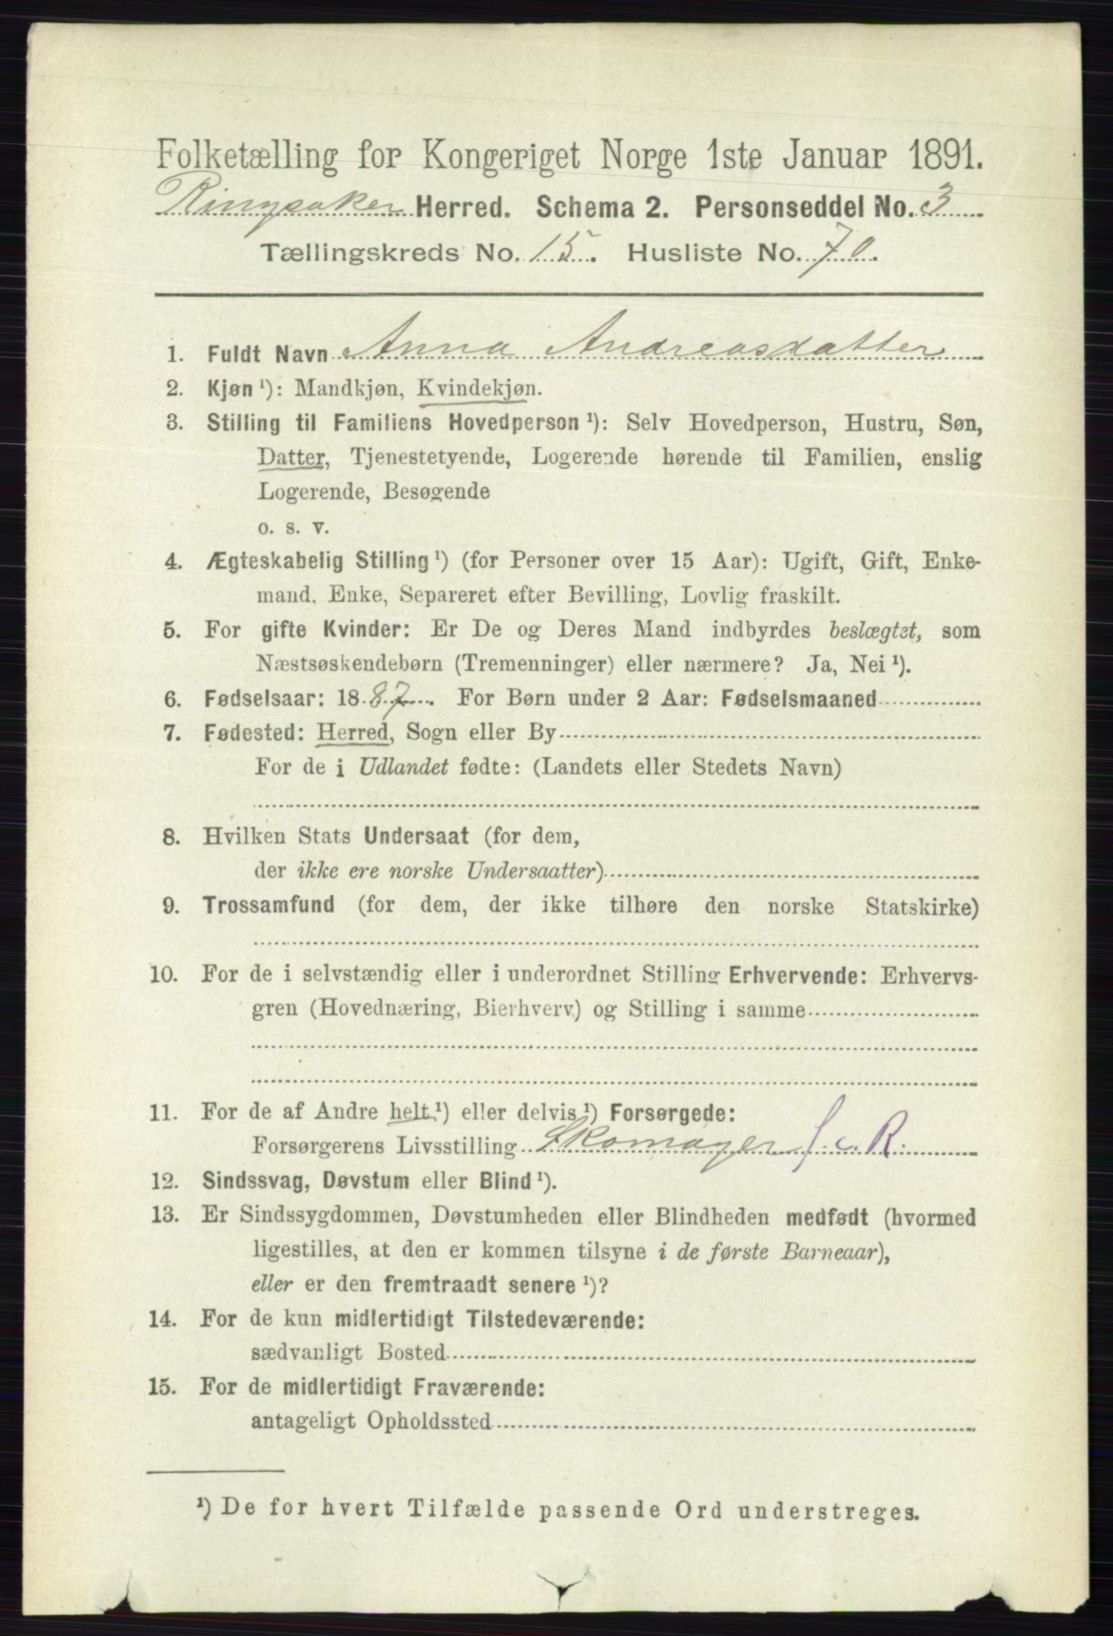 Folketælling for Kongeriget Norge 1ste Januar 1891.
Ringsaker Herred. Schema 2. Personseddel No. 3
Tællingskreds No. 15. Husliste No. 70.
1. Fuldt Navn Anna Andreasdatter
2. Kjøn ¹): Mandkjøn, Kvindekjøn.
3. Stilling til Familiens Hovedperson ¹): Selv Hovedperson, Hustru, Søn,
Datter, Tjenestetyende, Logerende hørende til Familien, enslig
Logerende, Besøgende
o. s. v.
4. Ægteskabelig Stilling ¹) (for Personer over 15 Aar): Ugift, Gift, Enke-
mand, Enke, Separeret efter Bevilling, Lovlig fraskilt.
5. For gifte Kvinder: Er De og Deres Mand indbyrdes beslægtet, som
Næstsøskendebørn (Tremenninger) eller nærmere? Ja, Nei ¹).
6. Fødselsaar: 1887. For Børn under 2 Aar: Fødselsmaaned
7. Fødested: Herred, Sogn eller By
For de i Udlandet fødte: (Landets eller Stedets Navn)
8. Hvilken Stats Undersaat (for dem,
der ikke ere norske Undersaatter)
9. Trossamfund (for dem, der ikke tilhøre den norske Statskirke)
10. For de i selvstændig eller i underordnet Stilling Erhvervende: Erhvervs-
gren (Hovednæring, Bierhverv) og Stilling i samme
11. For de af Andre helt ¹) eller delvis ¹) Forsørgede:
Forsørgerens Livsstilling Skomager f. c. R.
12. Sindssvag, Døvstum eller Blind ¹).
13. Er Sindssygdommen, Døvstumheden eller Blindheden medfødt (hvormed
ligestilles, at den er kommen tilsyne i de første Barneaar),
eller er den fremtraadt senere ¹)?
14. For de kun midlertidigt Tilstedeværende:
sædvanligt Bosted
15. For de midlertidigt Fraværende:
antageligt Opholdssted
¹) De for hvert Tilfælde passende Ord understreges.